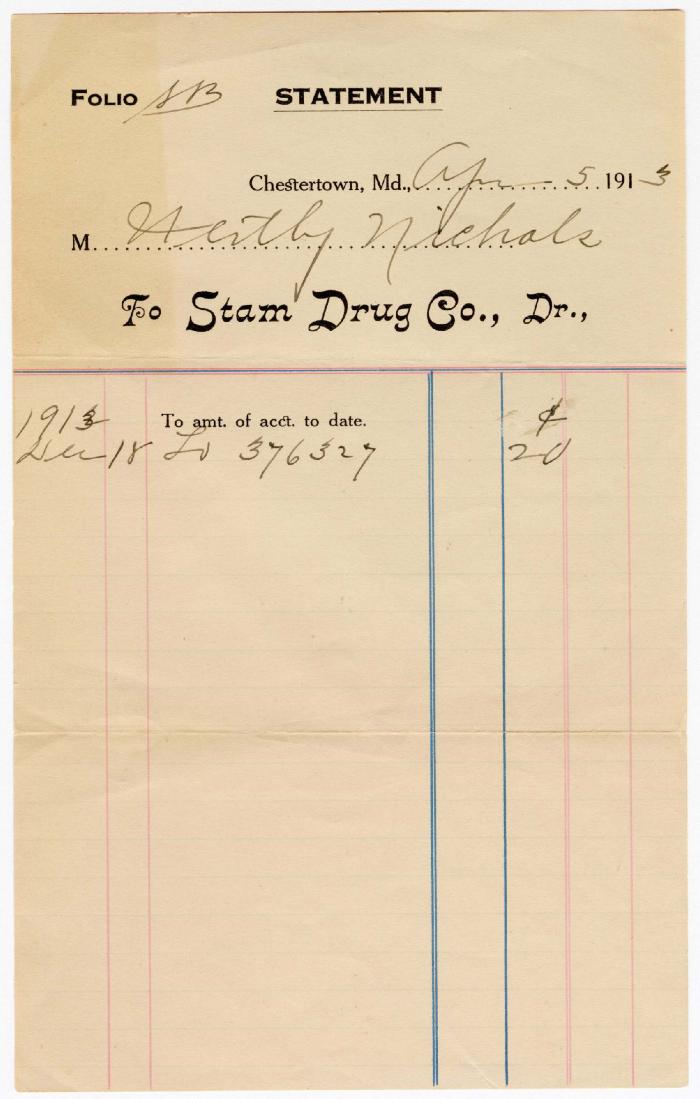 FOLIO SB STATEMENT
Chestertown, Md., Apr 5 1913
M Westby Nichols
To Stam Drug Co., Dr.,
1913 To amt. of acct. to date. ¢
Dec 18 To 376327 20